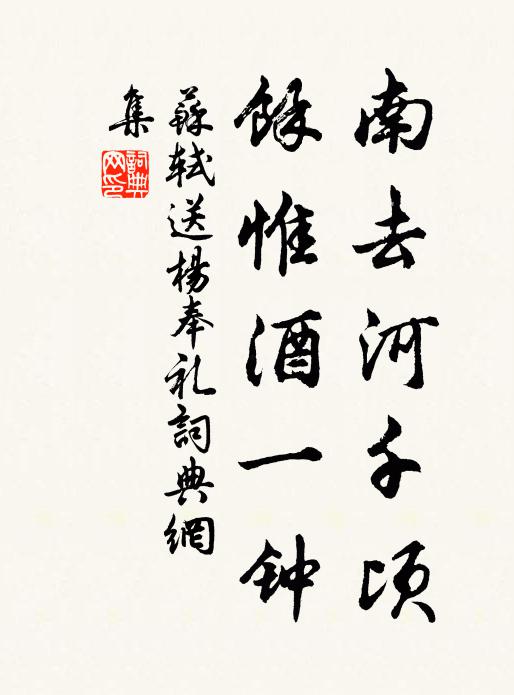 南去河千顷
餘惟酒一钟
蘇軾送楊奉礼詞典網
集
詞典
网印